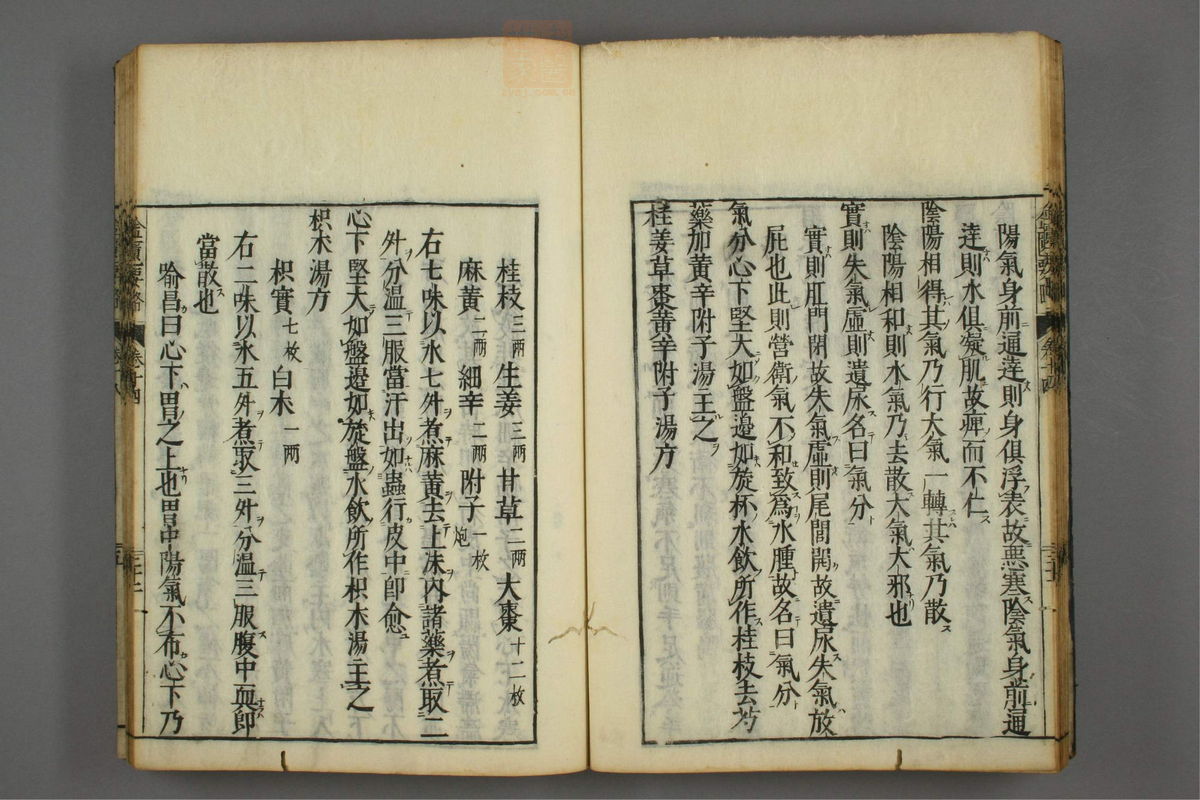 陽氣身前通達則身俱浮表故惡寒陰氣身前通
達則水俱凝肌故痺而不仁
陰陽相得其氣乃行大氣一轉其氣乃散
陰陽相和則水氣乃去散大氣大邪也
實則失氣虛則遺尿名曰氣分
實則肛門閉故失氣虛則尾閭開故遺尿失氣放
屁也此則營衛氣不和致為水腫故名曰氣分
氣分心下堅大如盤邊如旋杯水飲所作桂枝去芍
藥加黃辛附子湯主之
桂姜草棗黃辛附子湯方
桂枝三兩生姜三兩甘草二兩大棗十二枚
麻黃二兩細辛二兩附子一枚炮
右七味以水七升煮麻黃去上沫內諸藥煮取二
升分溫三服當汗出如蟲行皮中即愈
心下堅大如盤邊如旋盤水飲所作枳朮湯主之
枳朮湯方
枳實七枚白朮一兩
右二味以水五升煮取三升分溫三服腹中耎即
當散也
喻昌曰心下胃之上也胃中陽氣不布心下乃
金匱要略
卷十四